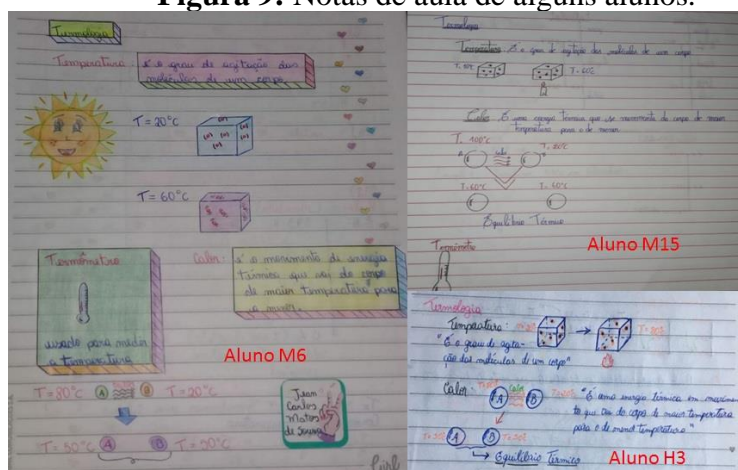 Figura 9: Notas de aula de alguns alunos.
Termologia
Temperatura é o grau de agitação das
moléculas de um corpo.
T = 20°C
T = 60°C
Termômetro
usado para medir
a temperatura
Calor: é o movimento de energia
térmica que vai do corpo
de maior temperatura para
o menor.
Aluno M6
T = 80°C A B T = 20°C
T = 50°C A B T = 50°C
Jean
Carlos
Matos
de Souza
Termologia
Temperatura É o grau de agitação das moléculas de um corpo
T = 60°C
Calor É uma energia térmica que se movimenta do corpo de maior
temperatura para o de menor
T. 100°C
A B
T. 60°C T. 60°C
Equilíbrio Térmico
Termômetro
Aluno M15
Termologia
Temperatura:
"É o grau de agita-
ção das moléculas de um corpo"
Calor: Calor
A B
"É uma energia térmica em movimen
to que vai do corpo de maior temperatura
para o de menor temperatura"
A B
Equilíbrio Térmico
Aluno H3